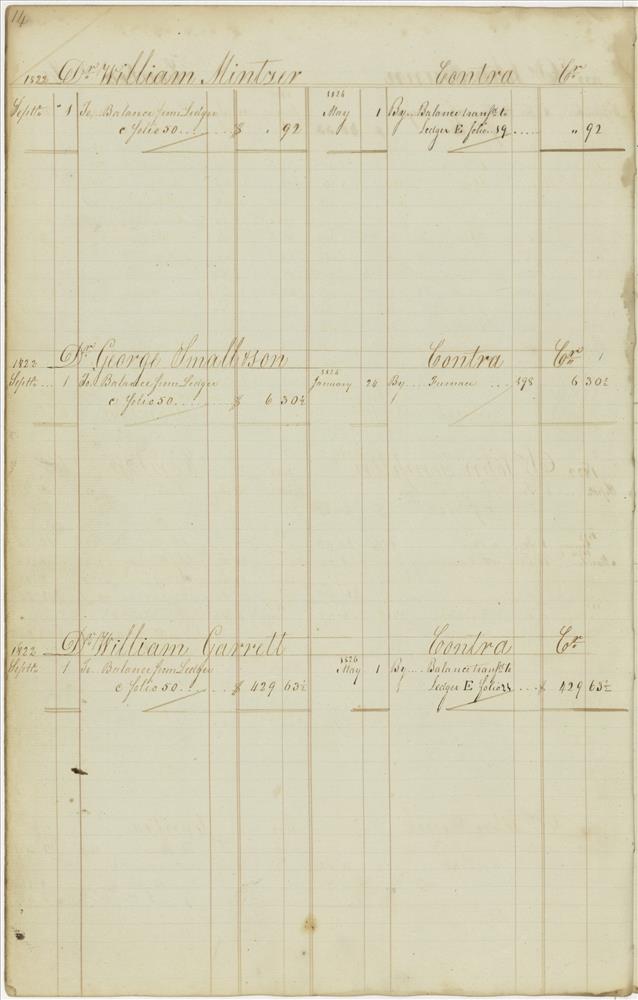 14
1822 Dr William Mintzer Contra Cr
1824
Septr " 1 To Balance from Ledger May 1 By Balance transfd to
C folio 50 $ " 92 Ledger E folio 19 " 92
1822 Dr George Smallwson Contra Cr
1824
Septr 1 To Balance from Ledger January 24 By Furnace 198 6 30½
C folio 50 $ 6 30½
1822 Dr William Garrett Contra Cr
1826
Septr 1 To Balance from Ledger May 1 By Balance transfd to
C folio 50 $ 429 63½ Ledger E folio $ 429 63½